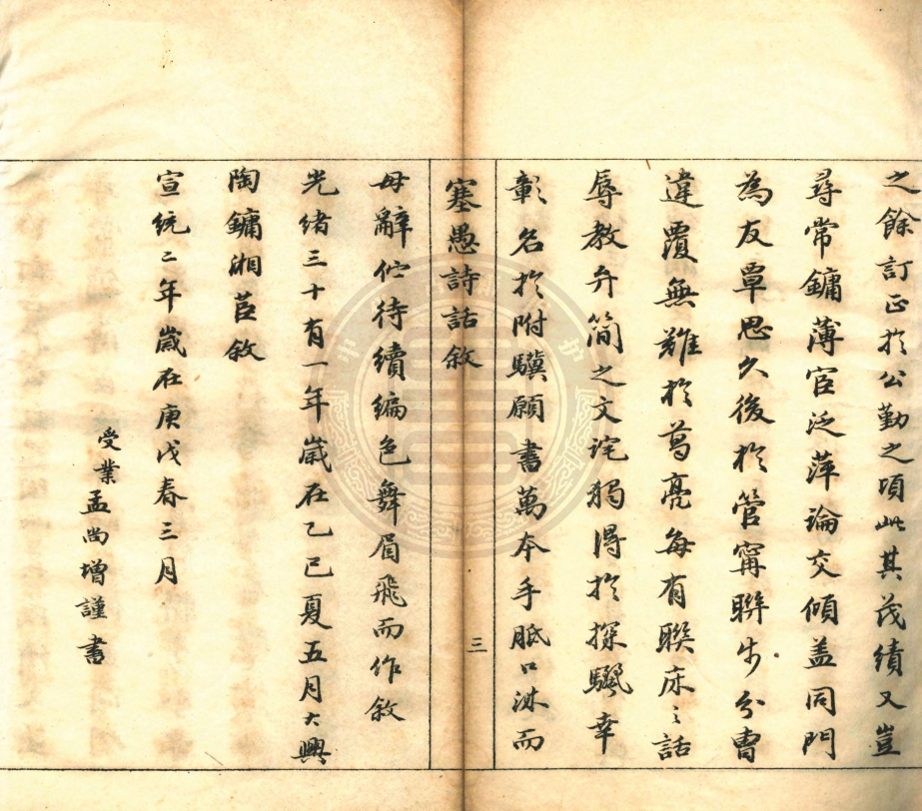 之餘訂正於公勤之項此其茂績又豈
尋常鏞薄宦泛萍論交傾盖同門
為友覃思久後於管甯聨步分曹
違覆無難於葛亮每有聯床之話
辱教弁簡之文詫獨得於探驪幸
彰名於附驥願書萬本手胝口沫而
塞愚詩話敘
三
毋辭伫待續編色舞眉飛而作敘
光緒三十有一年嵗在乙巳夏五月大興
陶鏞湘莒敘
宣統二年嵗在庚戌春三月
受業孟尚增謹書